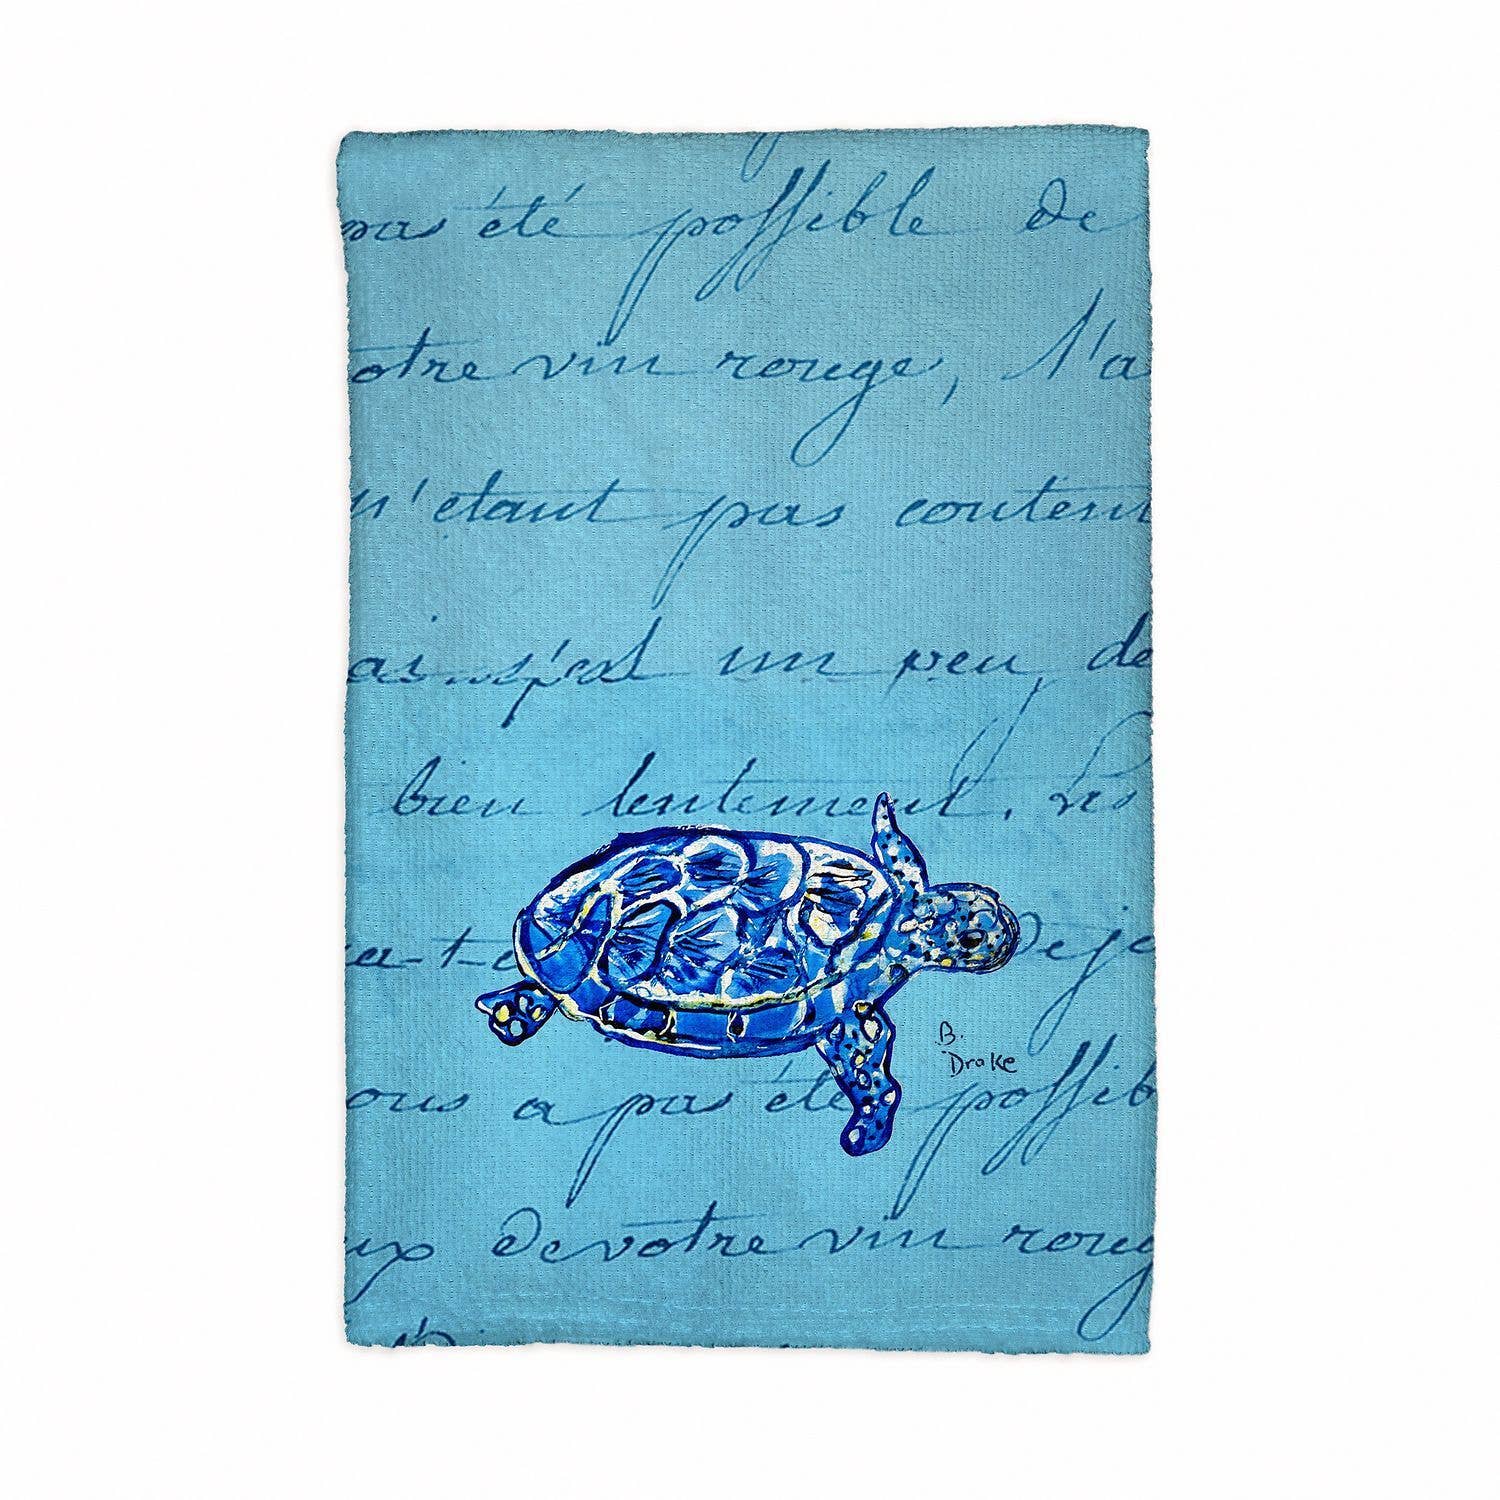 pas été possible de
otre vin rouge, l'a
n'etant pas content
ais s'est un peu de
bien lentement.
a-t-
Deje
B.
Drake
ous a pas été possib
ux de votre vin roug